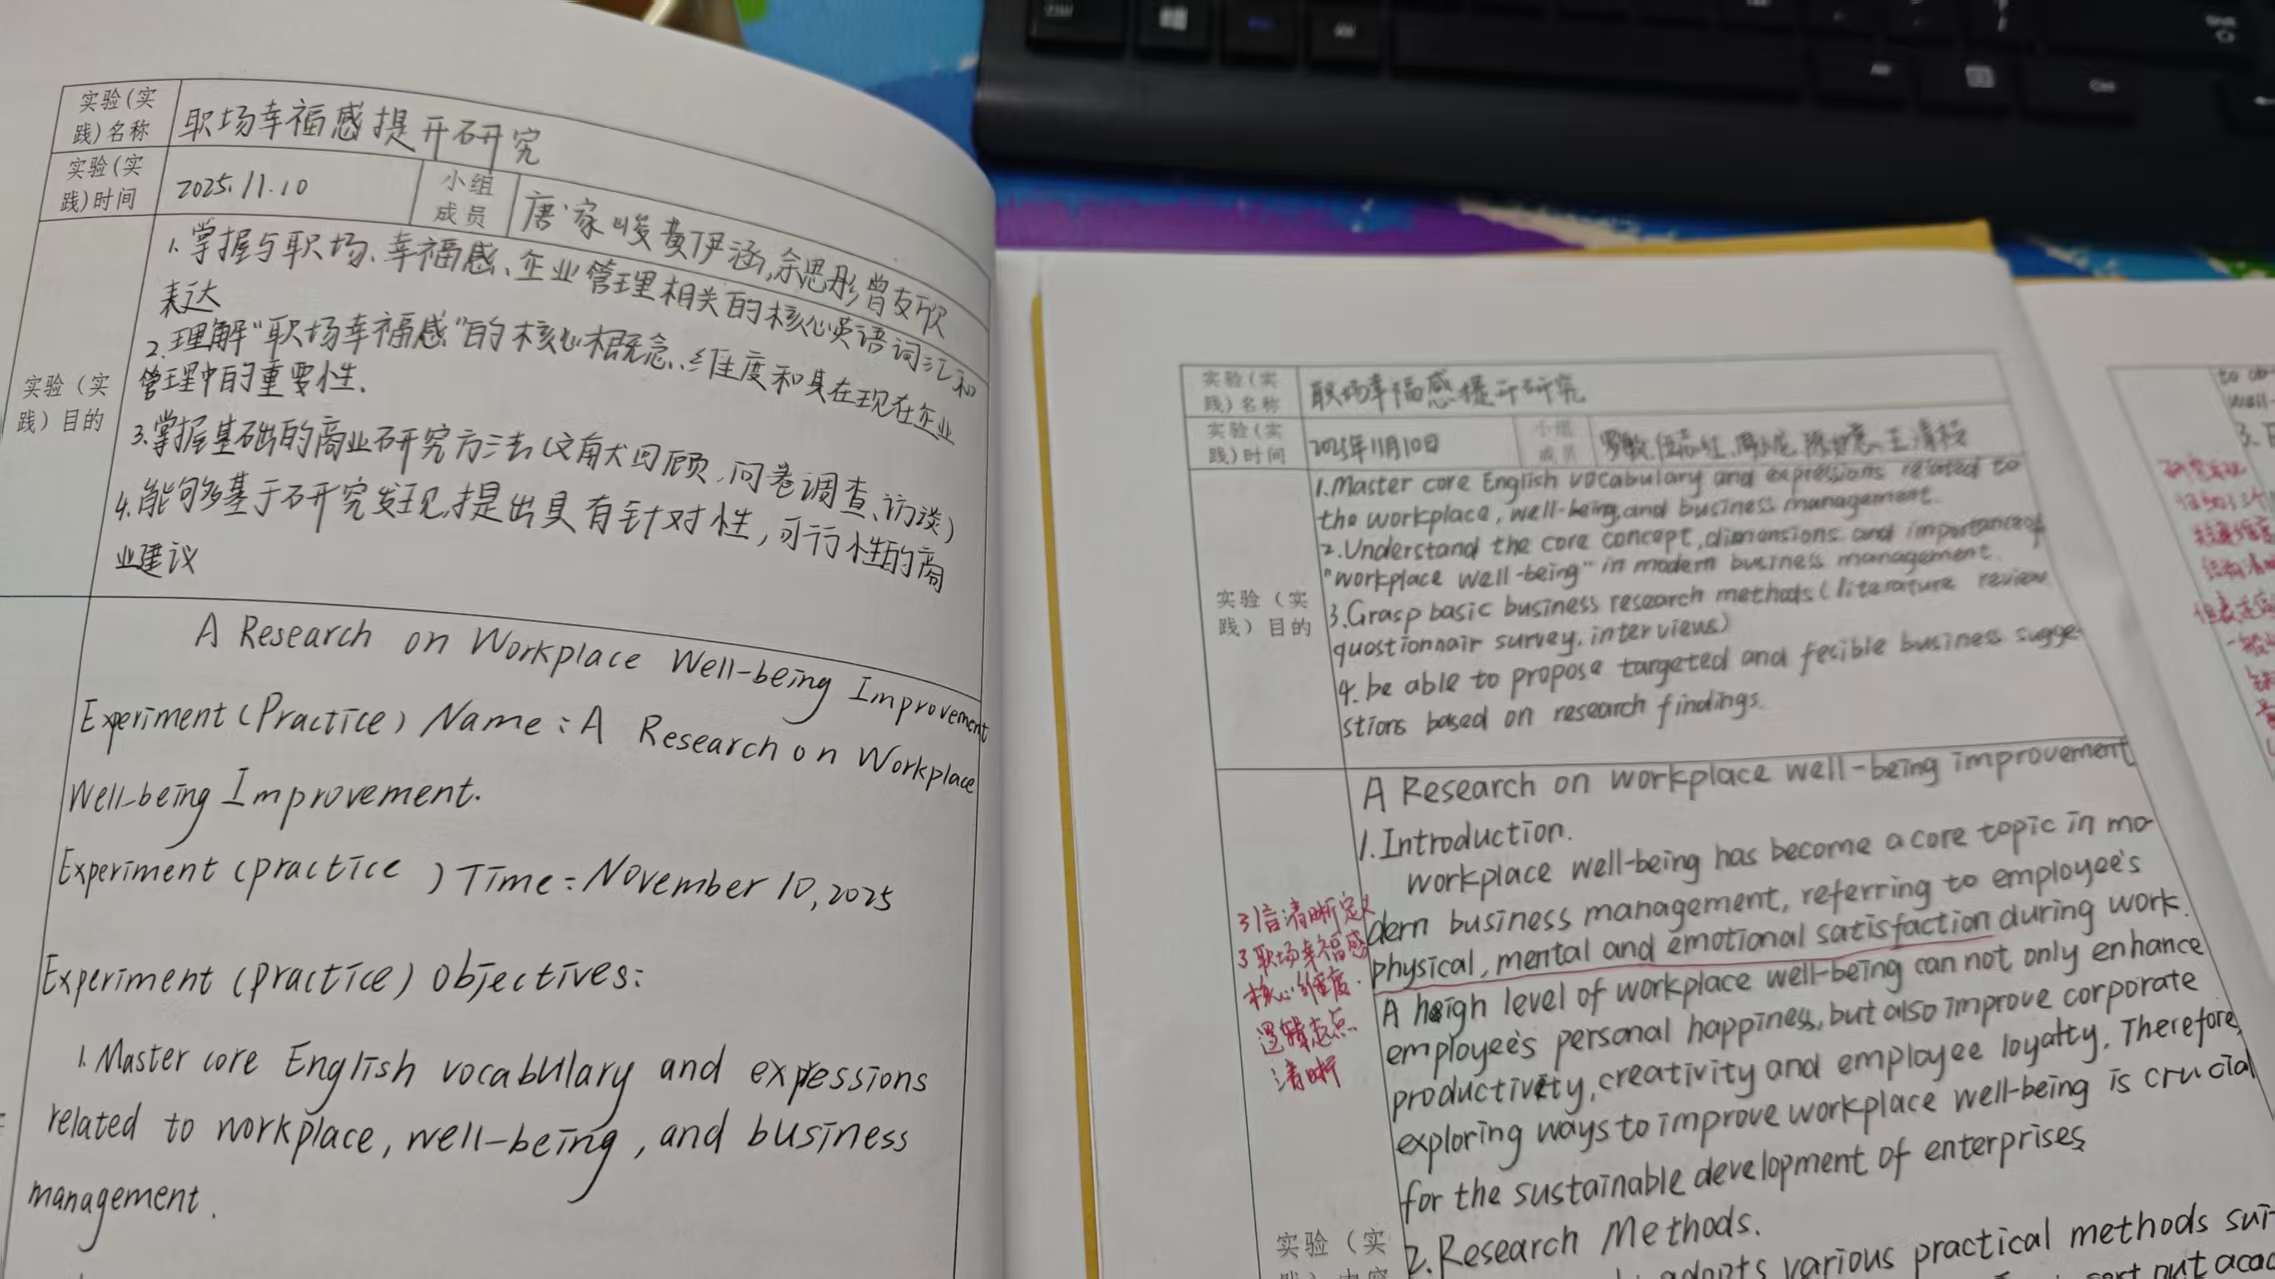 实验(实
践)名称
职场幸福感提升研究
实验(实
践)时间
2025.11.10
小组
成员
唐家峻黄伊涵,余思彤曾友欣
实验（实
践）目的
1.掌握与职场、幸福感、企业管理相关的核心英语词汇和
表达
2.理解"职场幸福感"的核心概念、维度和其在现在企业
管理中的重要性.
3.掌握基础的商业研究方法(文献回顾,问卷调查、访谈)
4.能够基于研究发现,提出具有针对性,可行性的商
业建议
A Research on Workplace Well-being Improvement
Experiment(Practice) Name:A Research on Workplace
Well-being Improvement.
Experiment (practice ) Time:November 10,2025
Experiment (practice) objectives:
1.Master core English vocabulary and expessions
related to workplace, well-being, and business
management.
实验(实
践)名称
职场幸福感提升研究
实验(实
践)时间
2025年11月10日
小组
成员
实验（实
践）目的
1.Master core English vocabulary and expressions related to
the workplace, well-being, and business management.
2.Understand the core concept, dimensions and importance of
"workplace well-being" in modern business management.
3.Grasp basic business research methods(literature review
questionnair survey. interviews)
4. be able to propose targeted and fecible business sugge-
stions based on research findings.
A Research on workplace well-being improvement
1.Introduction.
workplace well-being has become a core topic in mo-
dern business management, referring to employee's
physical, mental and emotional satisfaction during work.
A heigh level of workplace well-being can not only enhance
employee's personal happiness, but also improve corporate
productivity, creativity and employee loyalty. Therefore,
exploring ways to improve workplace well-being is crucial
for the sustainable development of enterprises
2.Research Methods.
adopts various practical methods
sort out
清晰定义
职场幸福感
核心维度.
逻辑起点
清晰
实验（实